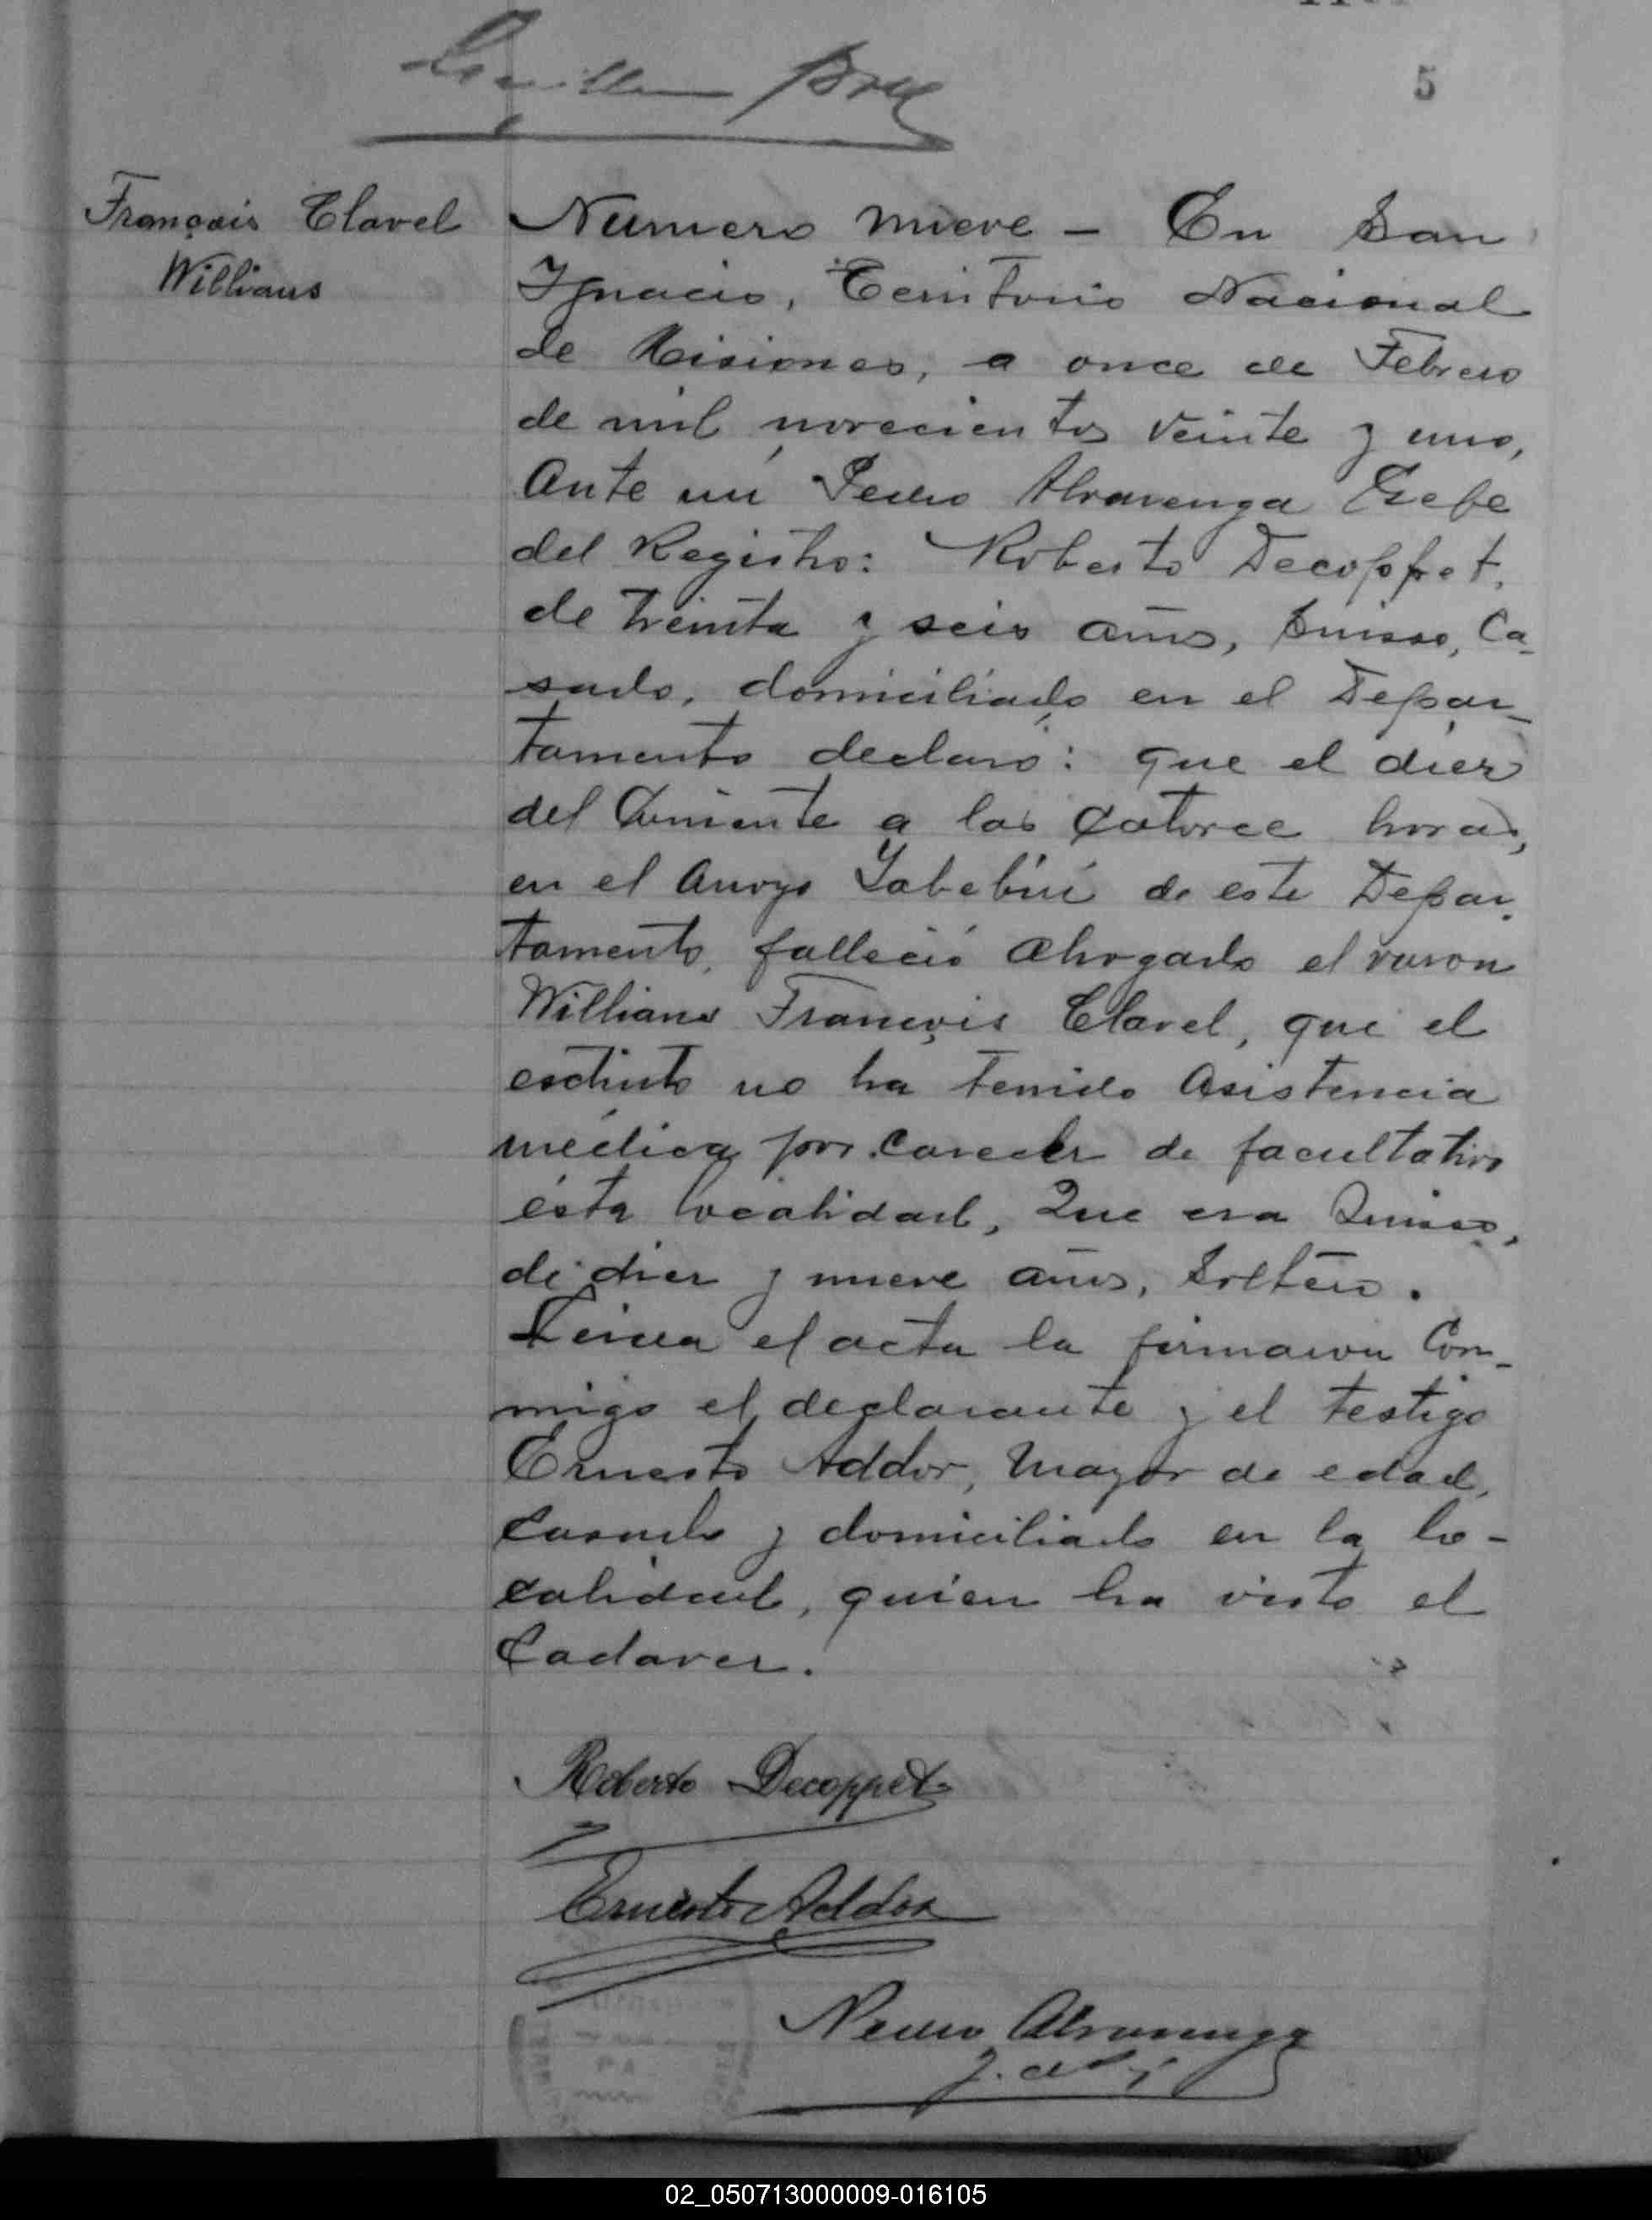 5
François Clavel
Willians
Numero nueve - En San
Ignacio, Territorio Nacional
de Misiones, a once de Febrero
de mil novecientos veinte y uno,
Ante mí Pedro Alvarenga Gefe
del Registro: Roberto Decoppet,
de treinta y seis años, Suisso, Ca-
sado, domiciliado en el Depar-
tamento declaró: que el diez
del Corriente a las Catorce horas,
en el Arroyo Yabebirí de este Depar-
tamento, falleció ahogado el varon
Willians François Clavel, que el
estinto no ha tenido Asistencia
médica por Carecer de facultativo
ésta localidad, Que era Suisso,
de diez y nueve años, Soltero.
Leida el acta la firmaron Con-
migo el declarante y el testigo
Ernesto Addor, Mayor de edad,
Casado y domiciliado en la lo-
calidad, quien ha visto el
Cadaver.
Roberto Decoppet
Ernesto Addor
Pedro Alvarenga
02_050713000009-016105